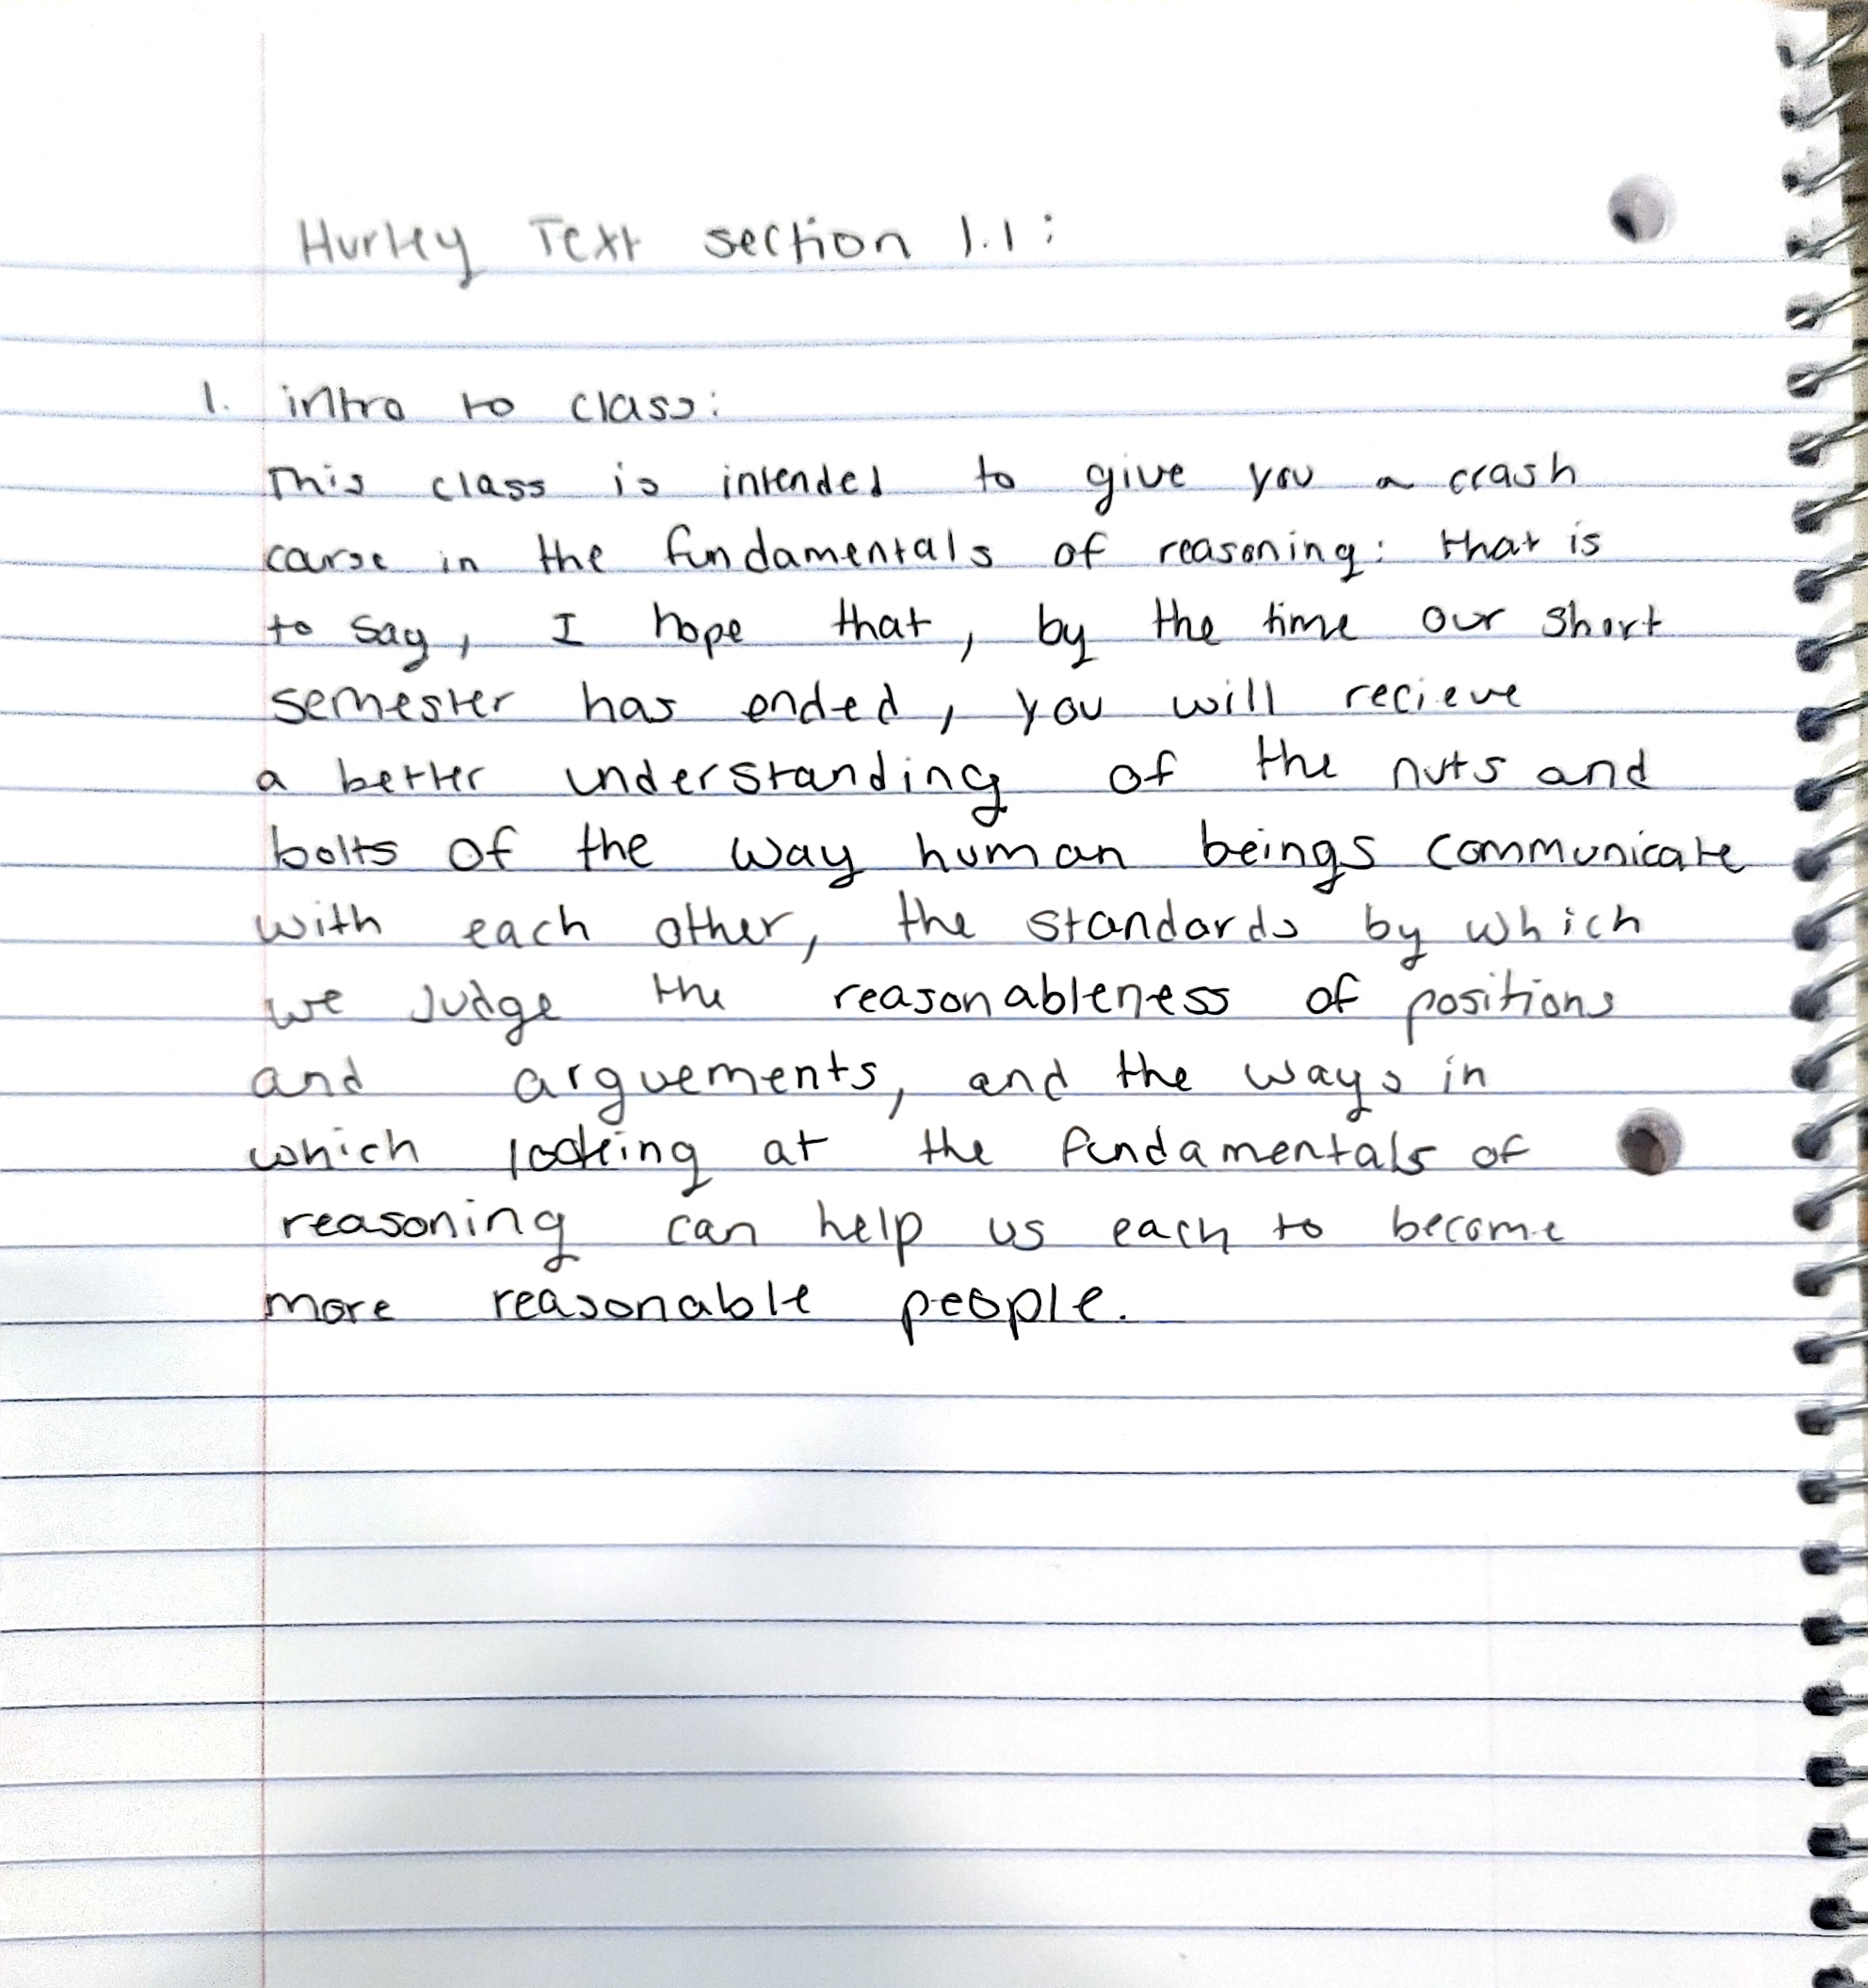 Hurley Text section 1.1:
1. intro to class:
This class is intended to give you a crash
carse in the fundamentals of reasoning: that is
to say, I hope that, by the time our short
semester has ended, you will recieve
a better understanding of the nuts and
bolts of the way human beings communicate
with each other, the standards by which
we Judge the reasonableness of positions
and arguements, and the ways in
which looking at the fundamentals of
reasoning can help us each to become
more reasonable people.